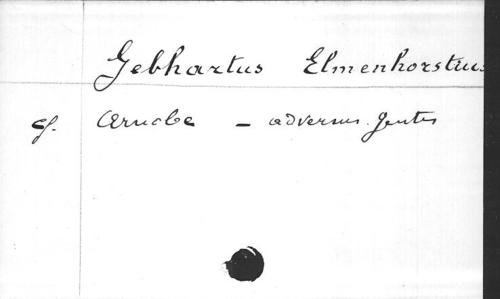 Gebhartus Elmenhorstius
cf. Arnobe - adversus gentes